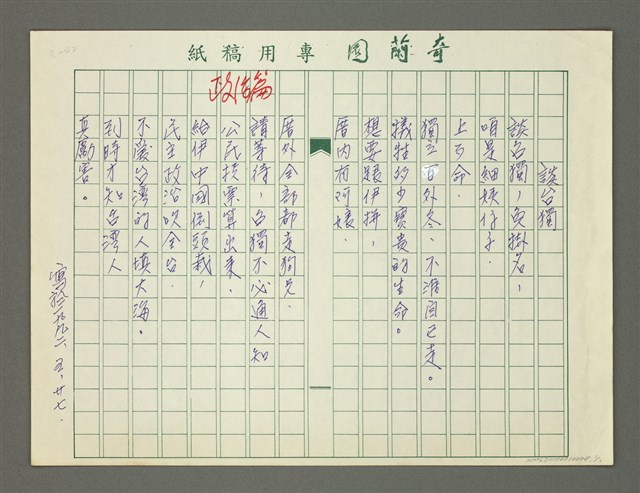 奇蘭園專用稿紙
政治篇
談台獨
談台獨，免掛名，
咱是細姨仔子．
上歹命．
獨立百外冬、不濟自己走。
犧牲的少寶貴的生命。
想要跟伊拼，
厝內有阿孃．
厝外全部都走狗兄．
請等待，台獨不必通人知
公民投票算出来．
給伊中國倒頭栽，
民主政治吹全台．
不愛台灣的人填大海。
到時才知台灣人
真厲害。
寫於一九九二、五、廿七．